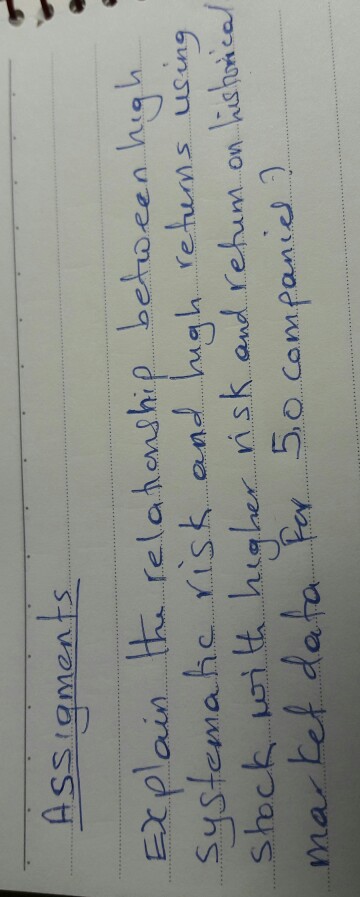 Assigments
Explain the relationship between high
systematic risk and high returns using
stock with higher risk and return on historical
market data for 50 companies?